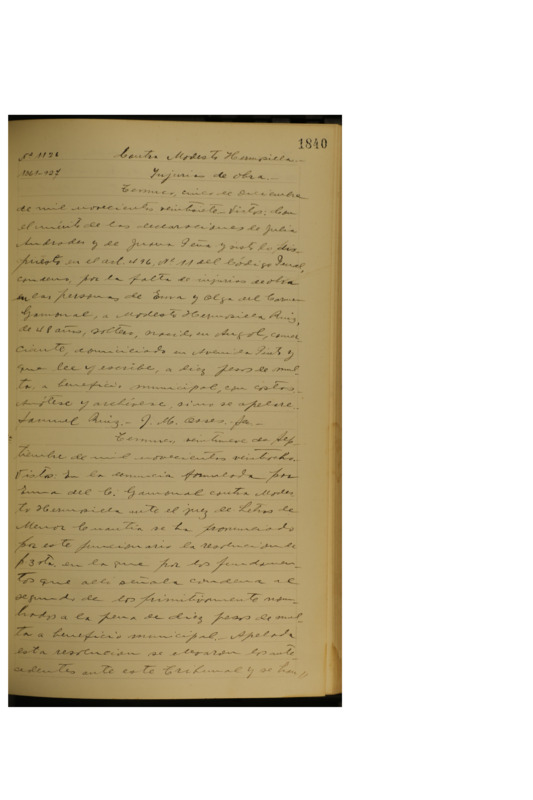 1840
Nº 1131 Contra Modesto Hermosilla.-
Injurias de obra.-
Temuco, cinco de Diciembre
de mil novecientos veintisiete. Vistos: Con
el mérito de las declaraciones de Julia
Andrades y de Juana Peña y visto lo dis-
puesto en el art 496 Nº 11 del Código Penal,
condeno, por la falta de injurias de obra
en las personas de Ema y Olga del Carmen
Gamonal, a Modesto Hermosilla Ruiz,
de 48 años, soltero, nacido en Angol, comer-
ciante, domiciliado en Avenida Pinto y
que lee y escribe, a diez pesos de mul-
ta, a beneficio municipal, con costas.
Anótese y archívese, si no se apelare.
Samuel Ruiz.- J. M.
Temuco, veintinueve de Sep-
tiembre de mil novecientos veintiocho.
Vistos: En la denuncia formulada por
Emma del C. Gamonal contra Modes-
to Hermosilla ante el juez de Letras de
Menor Cuantía se ha pronunciado
por este funcionario la resolución de
en la que por los fundamen-
tos que allí señala condena al
segundo de los primitivamente nom-
brados a la pena de diez pesos de mul-
ta a beneficio municipal.- Apelada
esta resolucion se elevaron los ante-
cedentes ante este Tribunal y se han